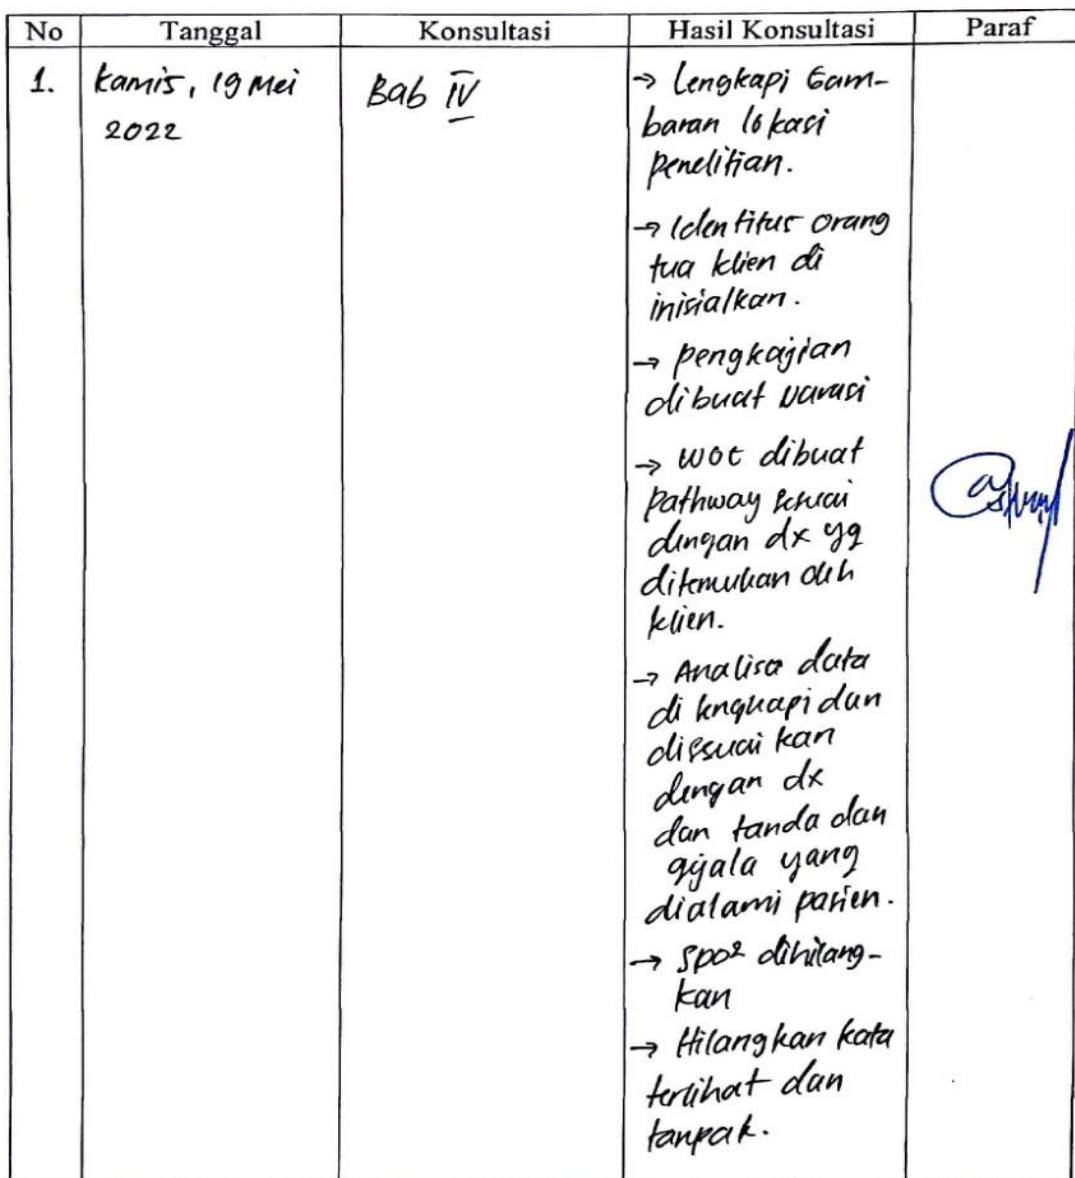 No Tanggal Konsultasi Hasil Konsultasi Paraf
1. Kamis, 19 Mei 2022 Bab IV → Lengkapi Gam-
baran lokasi
penelitian.
→ Identitas orang
tua klien di
inisialkan.
→ pengkajian
dibuat narasi
→ WOC dibuat
pathway sesuai
dengan dx yg
ditemukan oleh
klien.
→ Analisa data
di lengkapi dan
disesuai kan
dengan dx
dan tanda dan
gejala yang
dialami pasien.
→ SpO2 dihilang-
kan
→ Hilangkan kata
terlihat dan
tanpak.